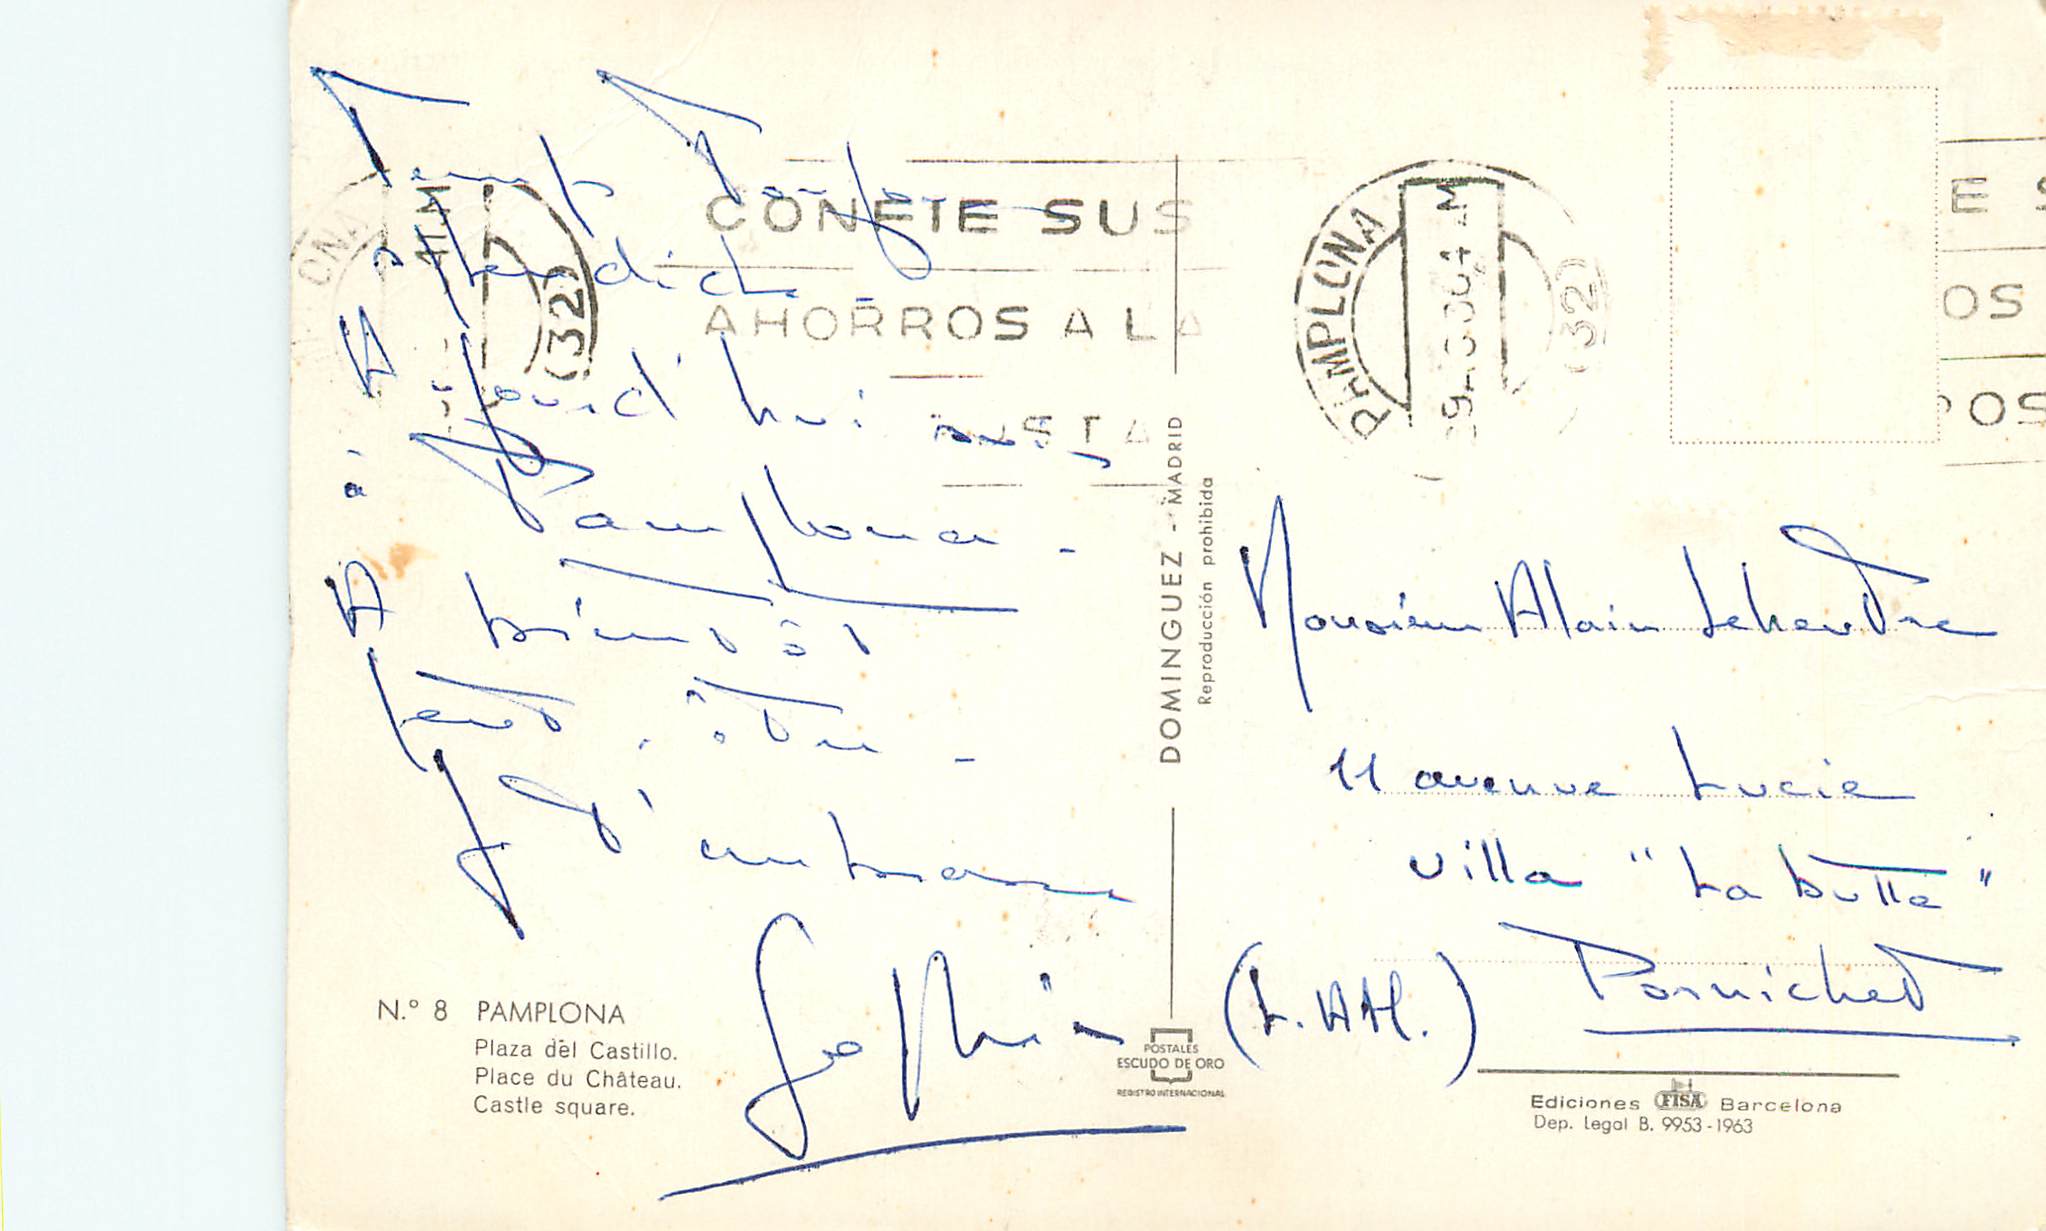 Temps Toujours
splendide
Aujourd'hui
à Pamplona -
A bientôt
peut être -
Je t'embrasse
Sophie
N.º 8 PAMPLONA
Plaza del Castillo.
Place du Château.
Castle square.
CONFIE SUS
AHORROS A LA
PAMPLONA
(32)
DOMINGUEZ - MADRID
Reproducción prohibida
POSTALES
ESCUDO DE ORO
REGISTRO INTERNACIONAL
Monsieur Alain
11 avenue Lucie
villa "La butte"
(L. Atl.) Pornichet
Ediciones FISA Barcelona
Dep. Legal B. 9953-1963